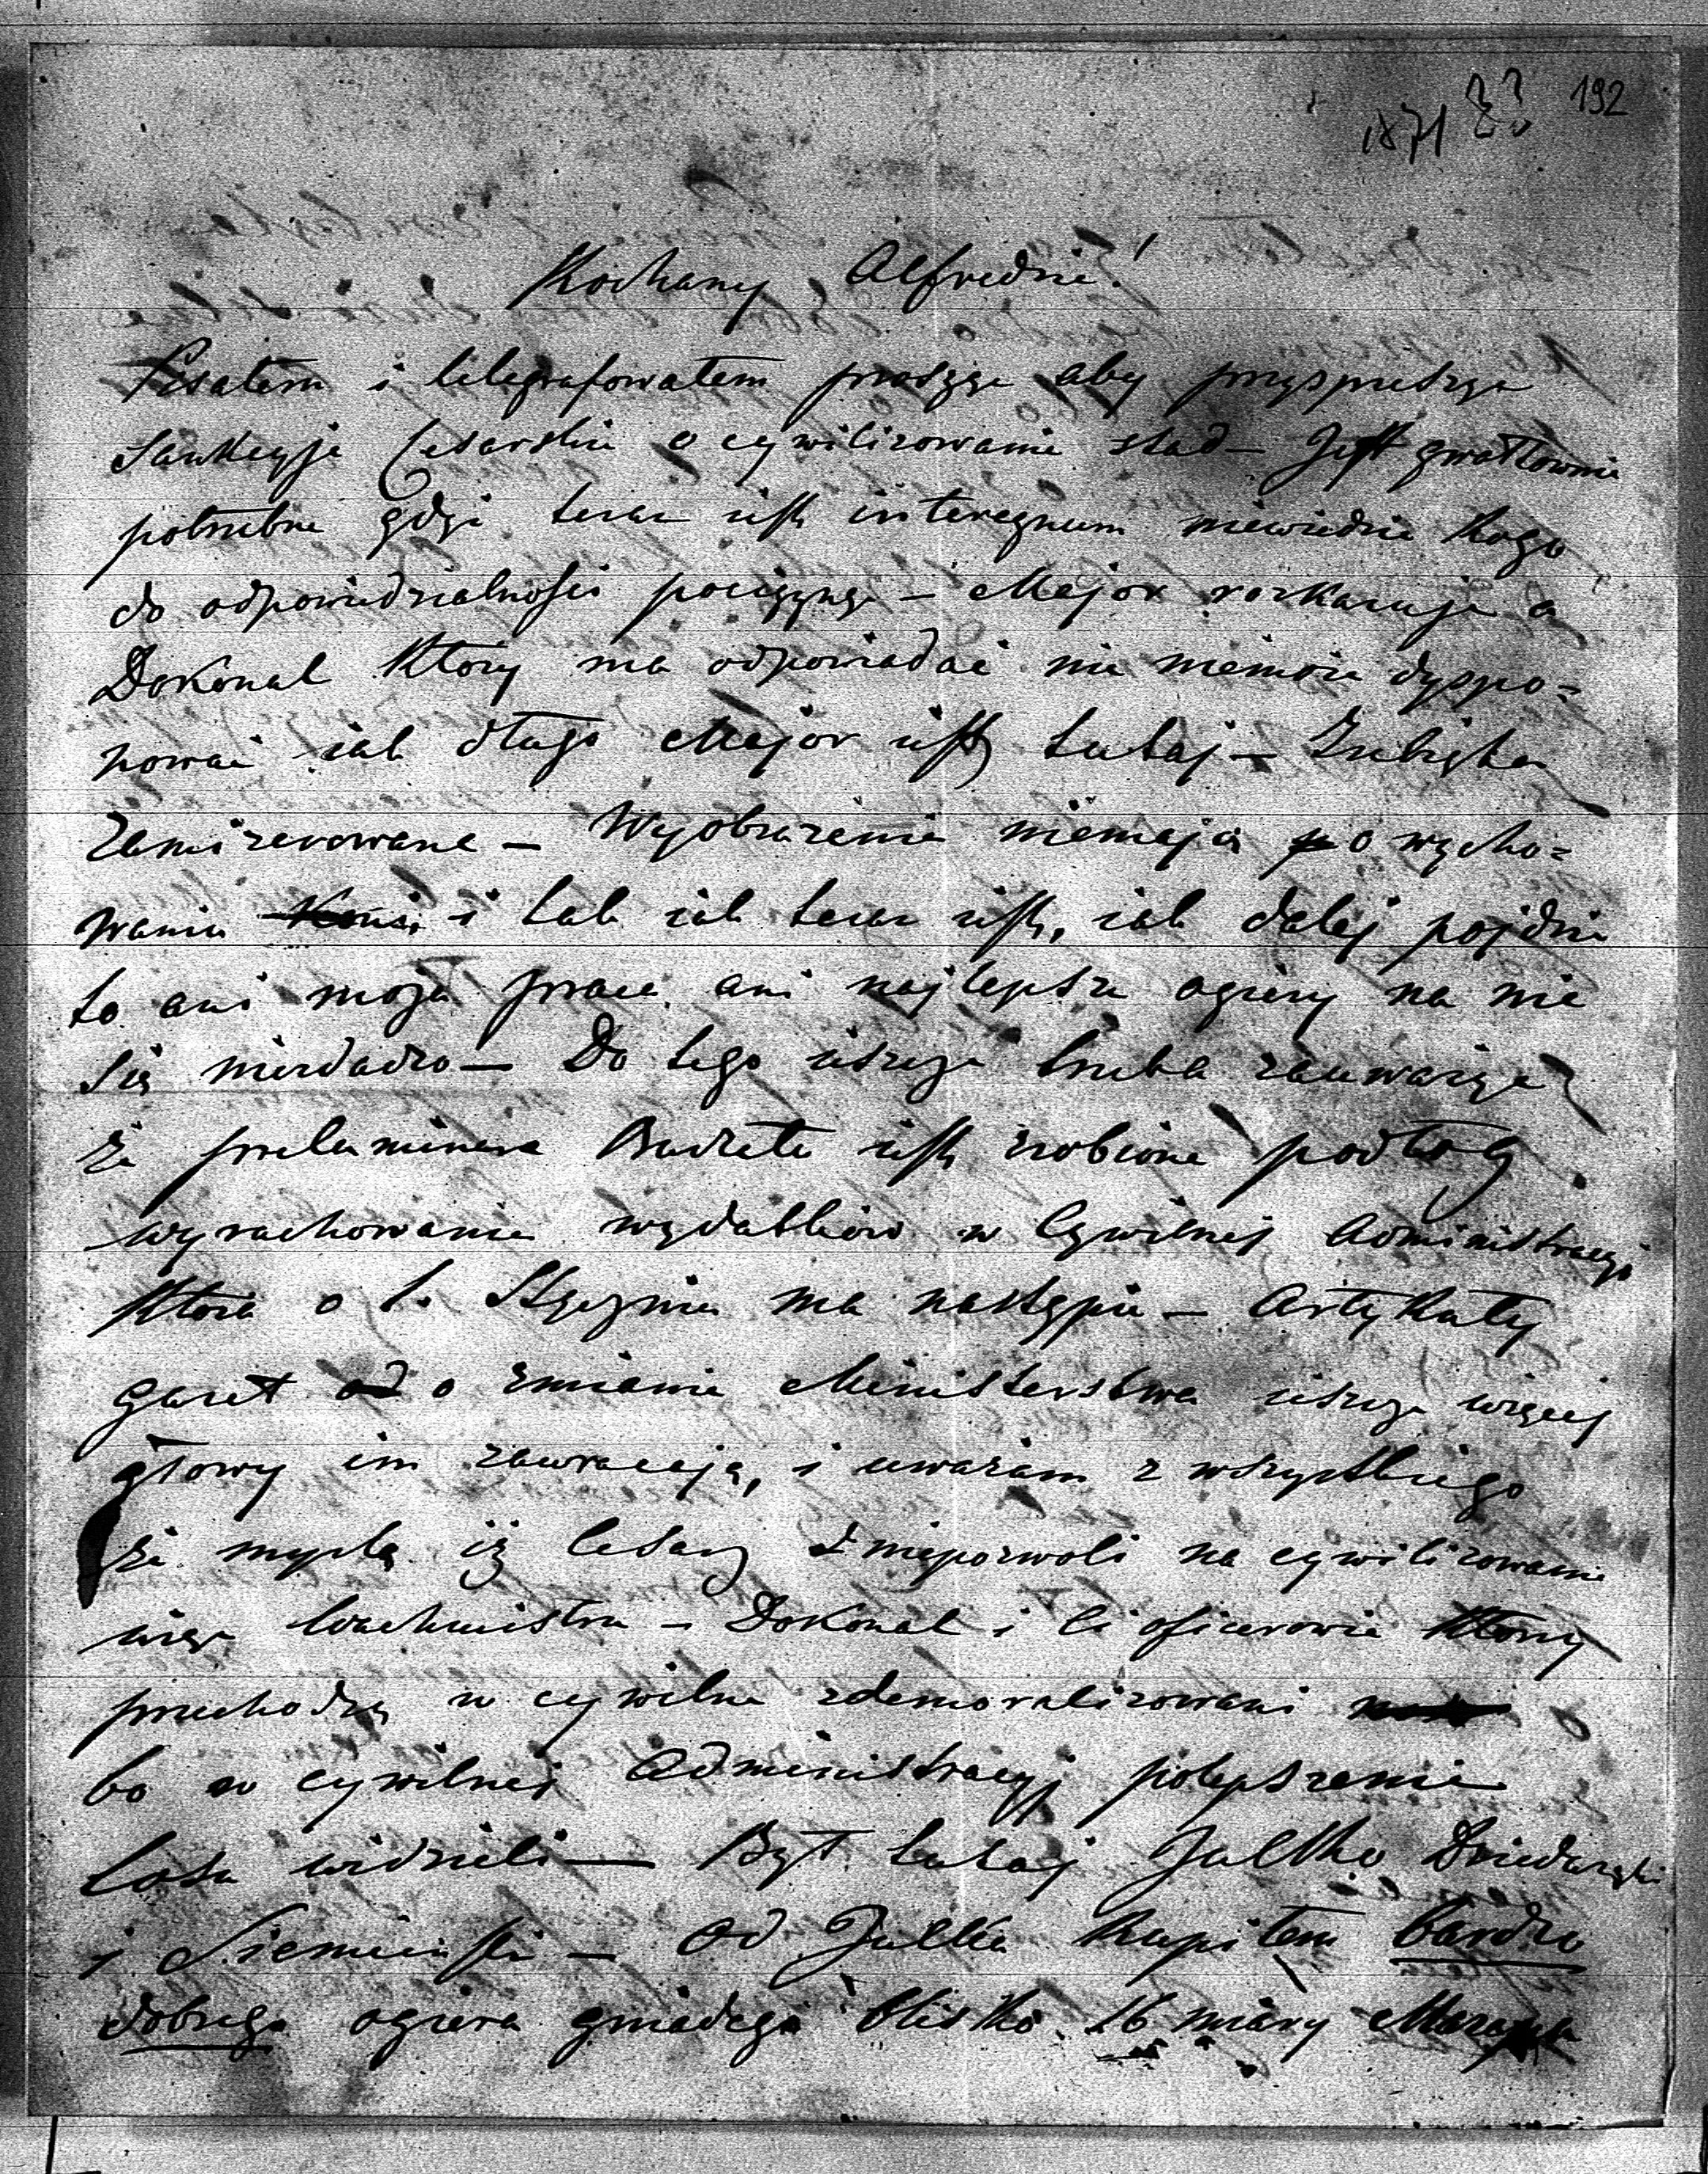 192
1871 ??
Kochany Alfredzie!
Pisałem i telegrafowałem proszę aby przyspieszyć
Sankcyję Cesarskie o cywilizowanie stad – Jest gwałtownie
potrzebne gdyż teraz jest interegnum niewiedzie kogo
do odpowiedzialności pociągnąć – Major rozkazuje a
Dokonal który ma odpowiadać nic niemoże dyspo=
nować jak długo Major jest tutaj – Źrebięta
– Wyobrażenia niemają o wycho=
waniu i tak jak teraz jest, jak dalej pójdzie
to ani moja praca ani najlepsze ogiery na nic
się nierdadzo – Do tego jeszcze trzeba zauważyć
że preleminarz Budżetu jest zrobione podłog
wyrachowania wydatków w Cywilnej Administracyi
która o 1. Stycznia ma nastąpić – Artykuły
gazet od o zmianie Ministerstwa jeszcze więcej
głowy im zawracają, i uważam z wszystkiego
że myslą iż Cesarz niepozwoli na cywilizowanie
więc Wachmistrze – Dokonal i Ci oficerowie którzy
przechodzą w cywilne zdemoralizowani
bo w cywilnej Administracyj polepszenie
losu widzieli – Był tutaj Julko Dzieduszycki
i Siemieński – Od Julka kupiłem bardzo
dobrego ogiera gniadego blisko 16 miary